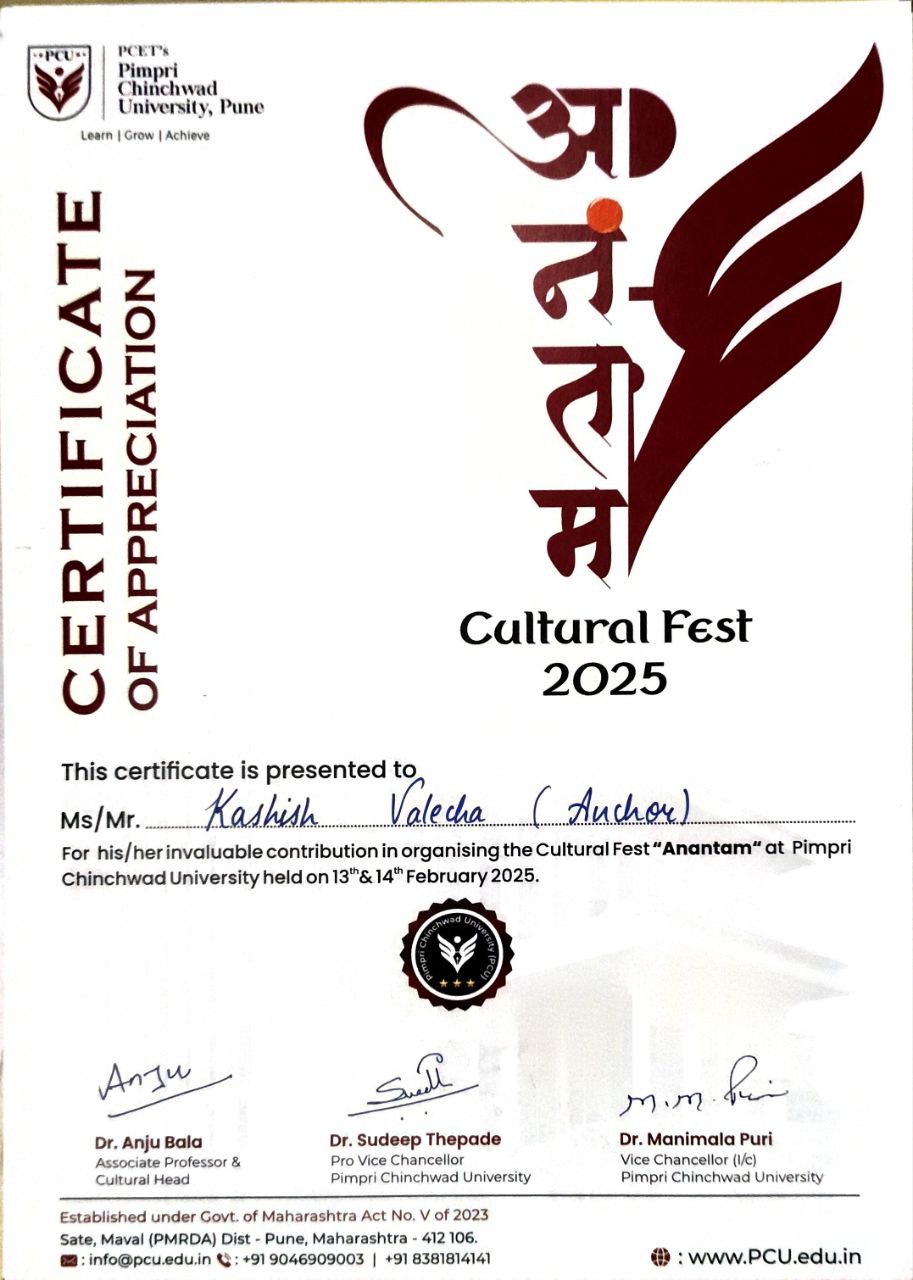 PCU
PCET's
Pimpri
Chinchwad
University, Pune
Learn | Grow | Achieve
CERTIFICATE
OF APPRECIATION
अनंतम
Cultural Fest
2025
This certificate is presented to
Ms/Mr. Kashish Valecha (Anchor)
For his/her invaluable contribution in organising the Cultural Fest “Anantam“ at Pimpri
Chinchwad University held on 13th & 14th February 2025.
Pimpri Chinchwad University (PCU)
Anju
M. M. Puri
Dr. Anju Bala
Associate Professor &
Cultural Head
Dr. Sudeep Thepade
Pro Vice Chancellor
Pimpri Chinchwad University
Dr. Manimala Puri
Vice Chancellor (I/c)
Pimpri Chinchwad University
Established under Govt. of Maharashtra Act No. V of 2023
Sate, Maval (PMRDA) Dist - Pune, Maharashtra - 412 106.
: info@pcu.edu.in : +91 9046909003 | +91 8381814141
: www.PCU.edu.in